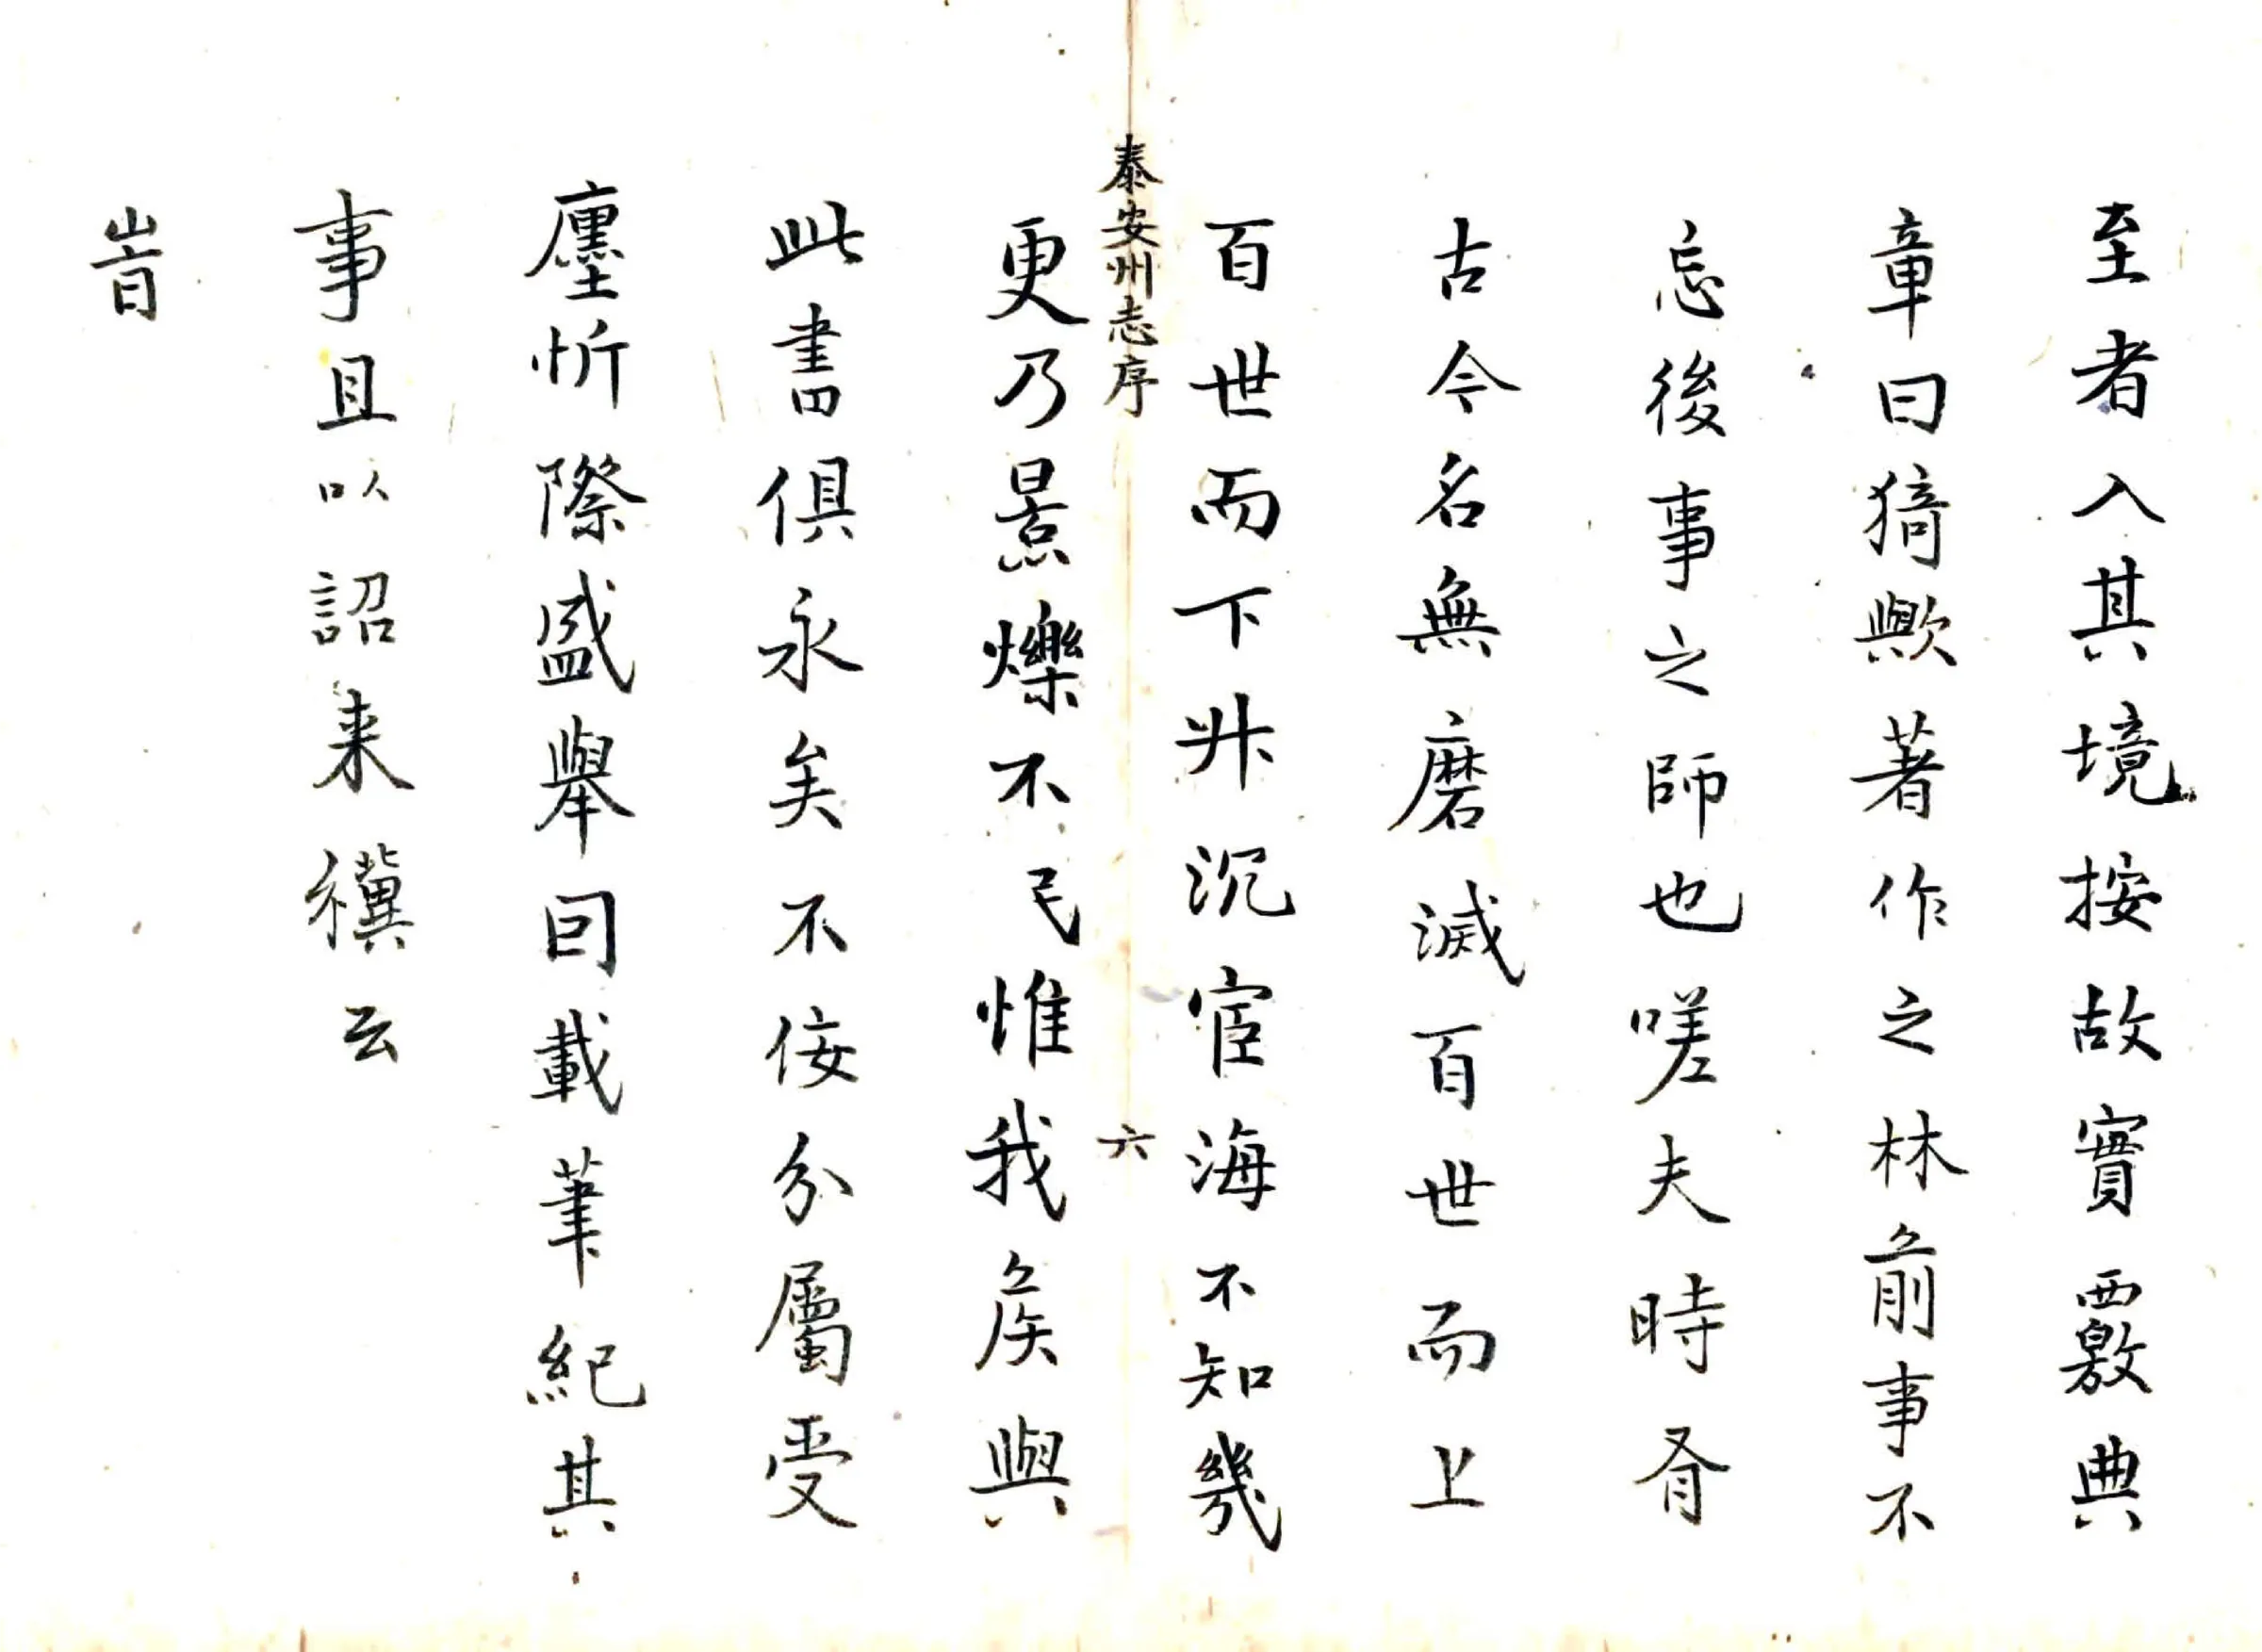 至者入其境按故實覈典
章曰猗歟著作之林前事不
忘後事之師也嗟夫時脊
古今名無磨滅百世而上
百世而下升沉宦海不知幾
更乃景爍不民惟我矦與
此書俱永矣不佞分屬受
廛忻際盛舉囙載筆紀其
事且以詔来禩云
旹
泰安州志序
六